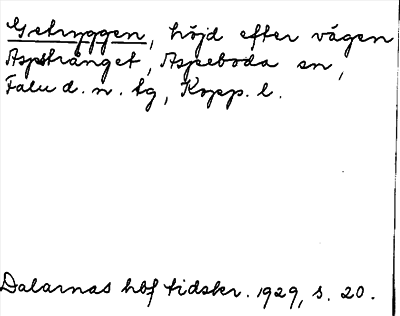 Getryggen, höjd efter vägen
Aspstånget, Aspeboda sn,
Falu d. n. tg, Kopp. l.
Dalarnas hbf tidskr. 1929, s. 20.